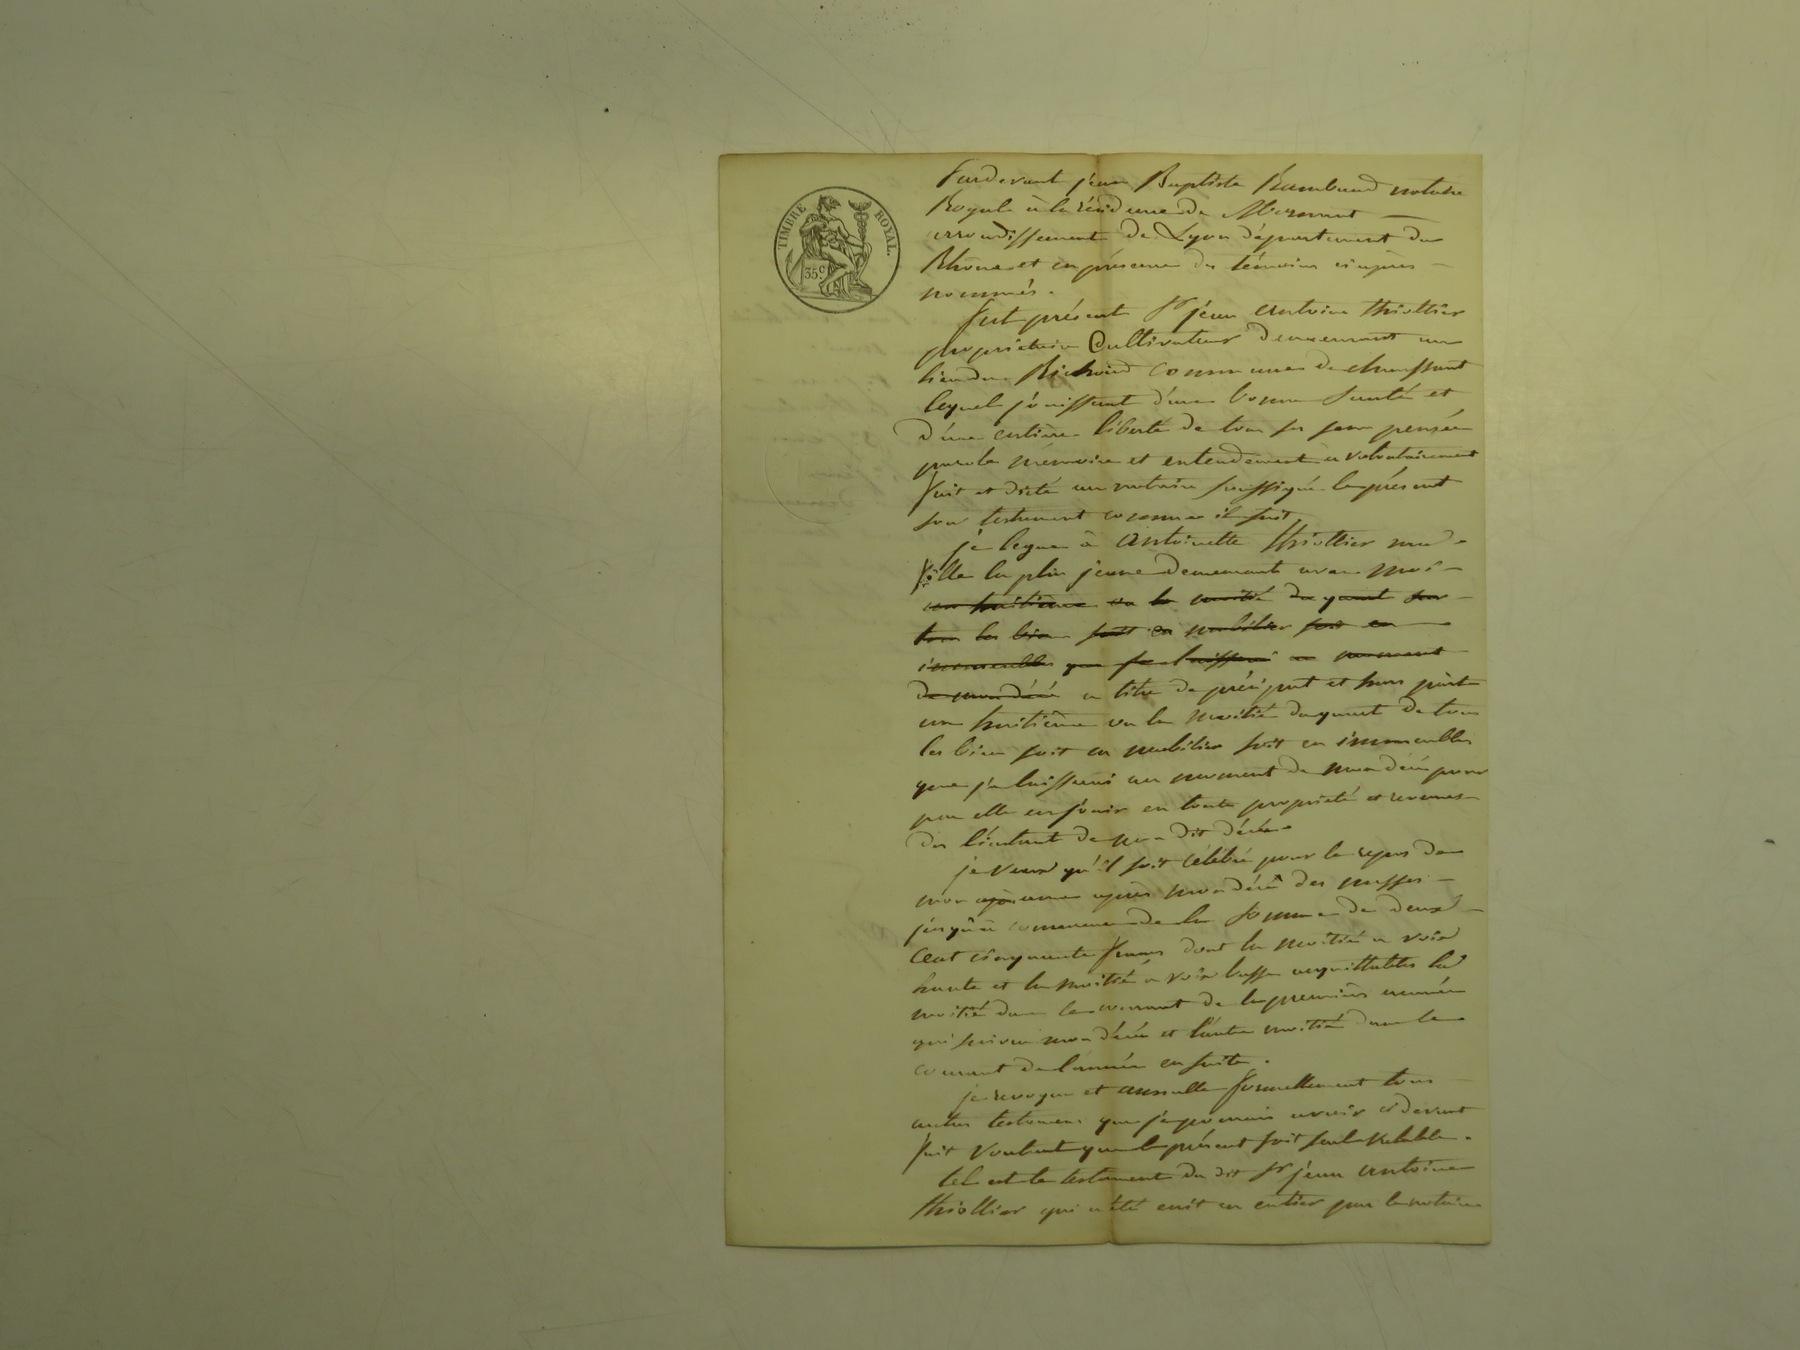 TIMBRE ROYAL.
35c.
Pardevant jean Baptiste Rambaud notaire
Royale à la résidence de Mornant
arrondissement de Lyon département du
Rhône et en présence des témoins ci après
nommés.
fut présent Sr jean antoine thiollier
propriétaire Cultivateur demeurant au
lieu du Richoud commune de chaussant
lequel jouissant d'une bonne santé et
d'une entière liberté de tous ses sens pensée
parole mémoire et entendement a volontairement
fait et dicté au notaire soussigné le présent
son testament comme il suit,
je legue à antoinette thiollier ma
fille la plus jeune demeurant avec moi
un huitième ou la moitié du quart sur
tous les bien soit en mobilier soit en
immeubles que je laisserai au moment
de mon décès a titre de préciput et hors part
un huitième ou la moitié du quart de tous
les bien soit en mobilier soit en immeubles
que je laisserai au moment de mon décès pour
par elle en jouir en toute propriété et revenus
des l'instant de mon dit décès.
je veux qu'il soit célébré pour le repos de
mon âme après mon décès des messes
jusqu'à concurrence de la somme de deux
cent cinquante francs dont la moitié a voix
haute et la moitié a voix basse acquittables la
moitié dans le courant de la première année
qui suivra mon décès et l'autre moitié dans le
courant de l'année en suite.
je revoque et annulle formellement tous
autres testamens que je pourrais avoir ci devant
fait voulant que le présent soit seul valable.
tel est le testament du dit Sr jean antoine
thiollier qui a été écrit en entier par le notaire